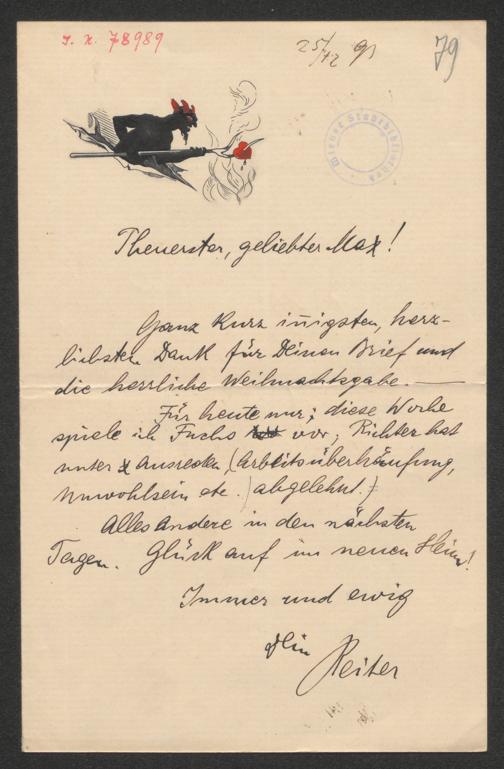 I. N. 78989
25/12 91
79
Wiener Stadtbibliothek
Theuerster, geliebter Max!
Ganz kurz iñigsten, herz-
liebsten Dank für Deinen Brief und
die herrliche Weihnachtsgabe. —
Für heute nur; diese Woche
spiele ich Fuchs vor; Richter hat
unter x Ausreden, (Arbeitsüberhäufung,
Unwohlsein etc.) abgelehnt.
Alles Andere in den nächsten
Tagen. Glück auf im neuen Heim!
Immer und ewig
Dein
Reiter